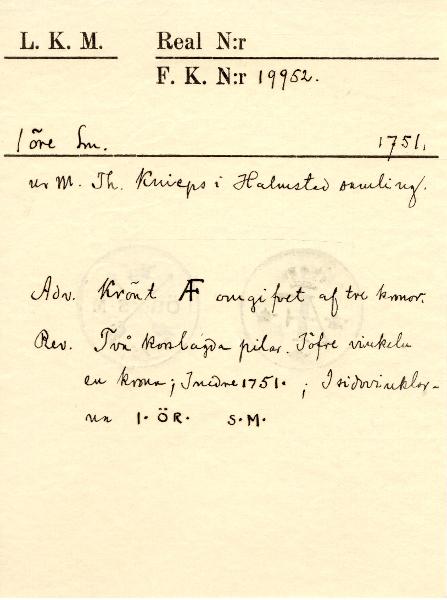 L. K. M. Real N:r
F. K. N:r 19952.
1 öre Sm. 1751.
ur M. Th. Knieps i Halmstad samling.
Adv. Krönt AF omgifvet af tre kronor.
Rev. Två korslagda pilar. I öfre vinkeln
en krona; I nedre 1751. ; I sidovinklar-
na 1. ÖR. S.M.